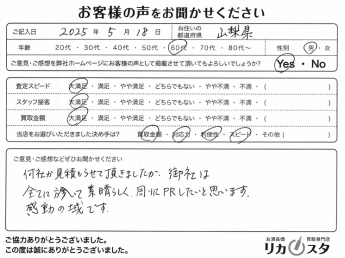 お客様の声をお聞かせください
ご記入日 2025年 5月 18日 お住いの都道府県 山梨県
年齢 20代・30代・40代・50代・60代・70代・80代〜 性別 男・女
ご意見・ご感想を弊社ホームページにお客様の声として掲載させて頂いてもよろしいでしょうか? Yes・No
査定スピード 大満足・満足・やや満足・どちらでもない・やや不満・不満・( )
スタッフ接客 大満足・満足・やや満足・どちらでもない・やや不満・不満・( )
買取金額 大満足・満足・やや満足・どちらでもない・やや不満・不満・( )
当店をお選びいただきました決め手は? 買取金額・対応力・利便性・スピード・その他( )
ご意見・ご感想などぜひお聞かせください
何社か見積もらせて頂きましたが、御社は
全てに渉って素晴らしく、周りにPRしたいと思います。
感動の域です。
ご協力ありがとうございました。
この度は誠にありがとうございました。
お酒高価買取専門店
リカスタ